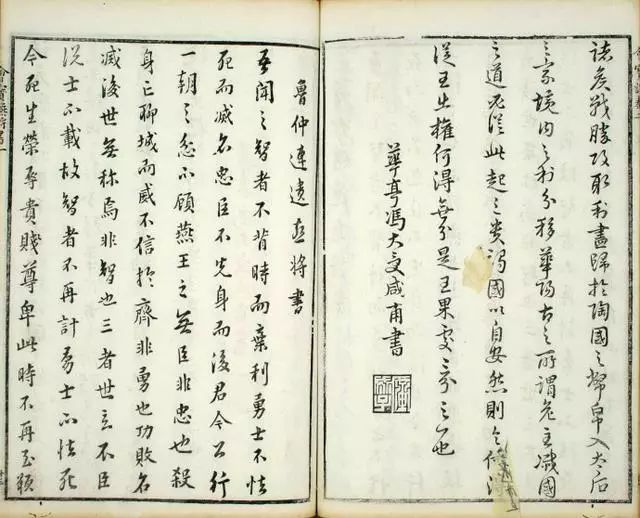 諸矦戰勝攻取利盡歸於陶國之幣帛入太后
之家境內之利分移華陽古之所謂危主滅國
之道必從此起三貴竭國以自安然則令何得
從王出權何得無分是王果處三分之一也
華亭馮大受咸甫書
魯仲連遺燕將書
吾聞之智者不背時而棄利勇士不怯
死而滅名忠臣不先身而後君今公行
一朝之忿不顧燕王之無臣非忠也殺
身亡聊城而威不信於齊非勇也功敗名
滅後世無稱焉非智也三者世主不臣
說士不載故智者不再計勇士不怯死
今死生榮辱貴賤尊卑此時不再至願